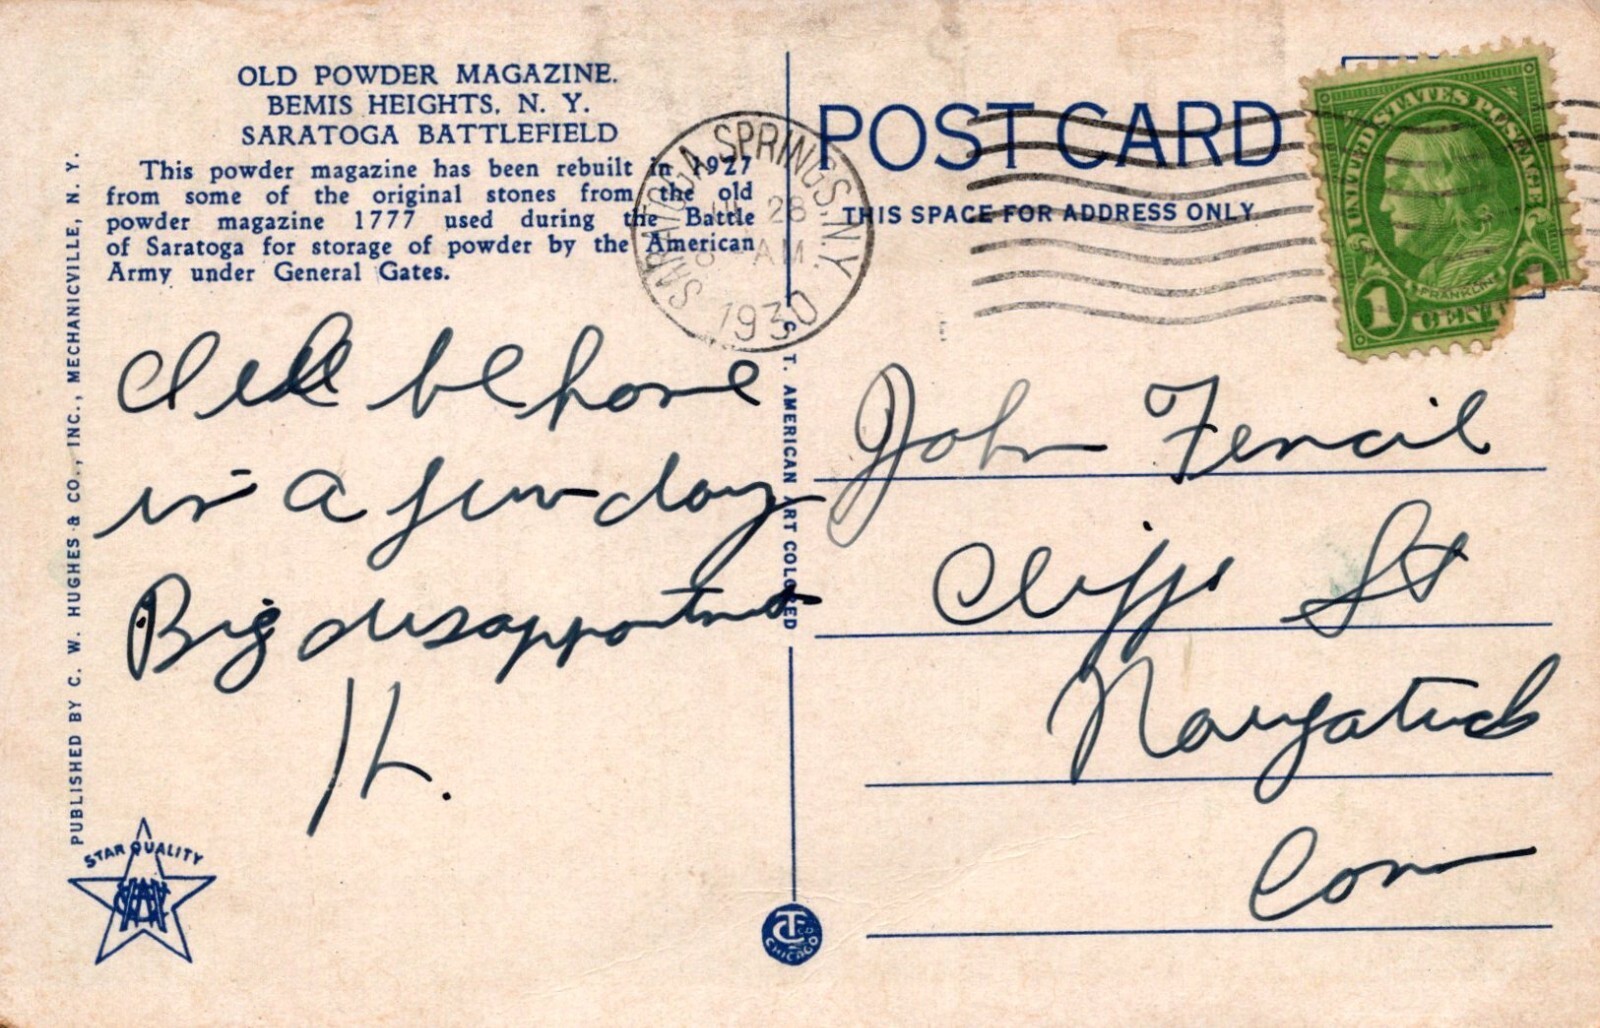 OLD POWDER MAGAZINE.
BEMIS HEIGHTS, N. Y.
SARATOGA BATTLEFIELD
This powder magazine has been rebuilt in 1927
from some of the original stones from the old
powder magazine 1777 used during the Battle
of Saratoga for storage of powder by the American
Army under General Gates.
PUBLISHED BY C. W. HUGHES & CO., INC., MECHANICVILLE, N. Y.
STAR QUALITY
SARATOGA SPRINGS, N.Y.
28
AM
1930
POST CARD
THIS SPACE FOR ADDRESS ONLY
UNITED STATES POSTAGE
FRANKLIN
1 CENT
C. T. AMERICAN ART COLORED
CT CO
CHICAGO
be home
in a few days
Big disappointment
H.
John Fencil
Cliff St
Naugatuck
Conn